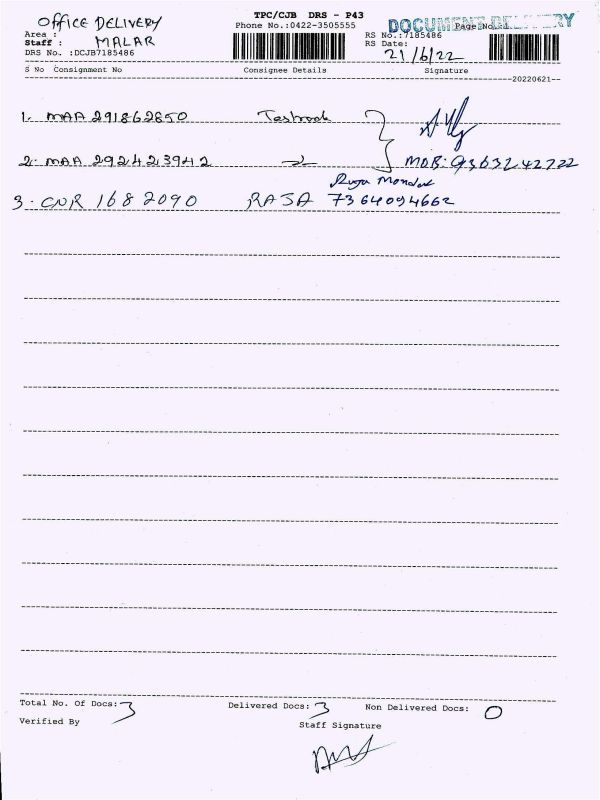 OFFICE DELIVERY
TPC/CJB DRS - P43
DOCUMENT DELIVERY
Page No.:1
Area :
Phone No.:0422-3505555
RS No.:7185486
Staff : MALAR
RS Date: 21/6/22
DRS No. :DCJB7185486
S No Consignment No Consignee Details Signature
--20220621--
1. MAA 291862850
2. MAA 292423942 MOB: 9363242722
3. CNR 1682090 RAJA 7364094662
Total No. Of Docs: 3 Delivered Docs: 3 Non Delivered Docs: 0
Verified By Staff Signature